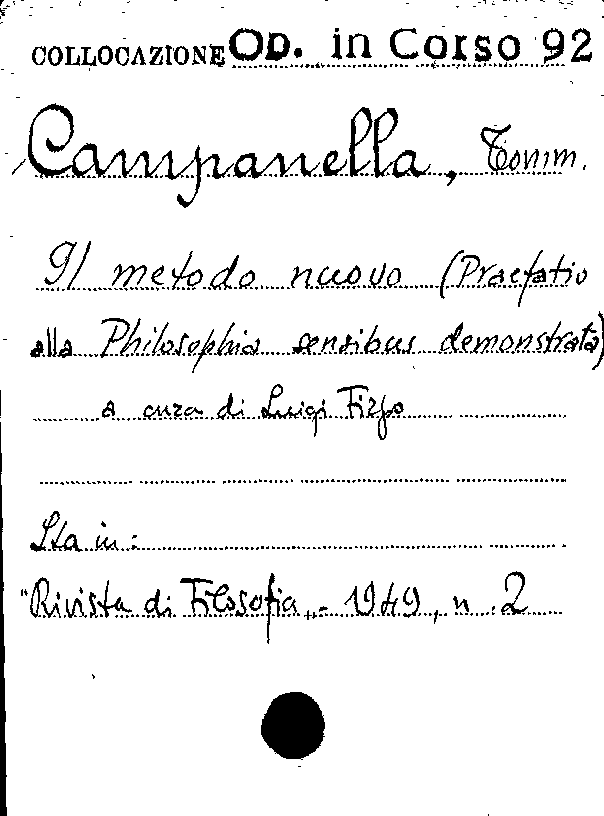 COLLOCAZIONE OD. in Corso 92
Campanella, Tomm.
Il metodo nuovo (Praefatio
alla Philosophia sensibus demonstrata)
a cura di Luigi Firpo
Sta in:
"Rivista di Filosofia„- 1949, n. 2